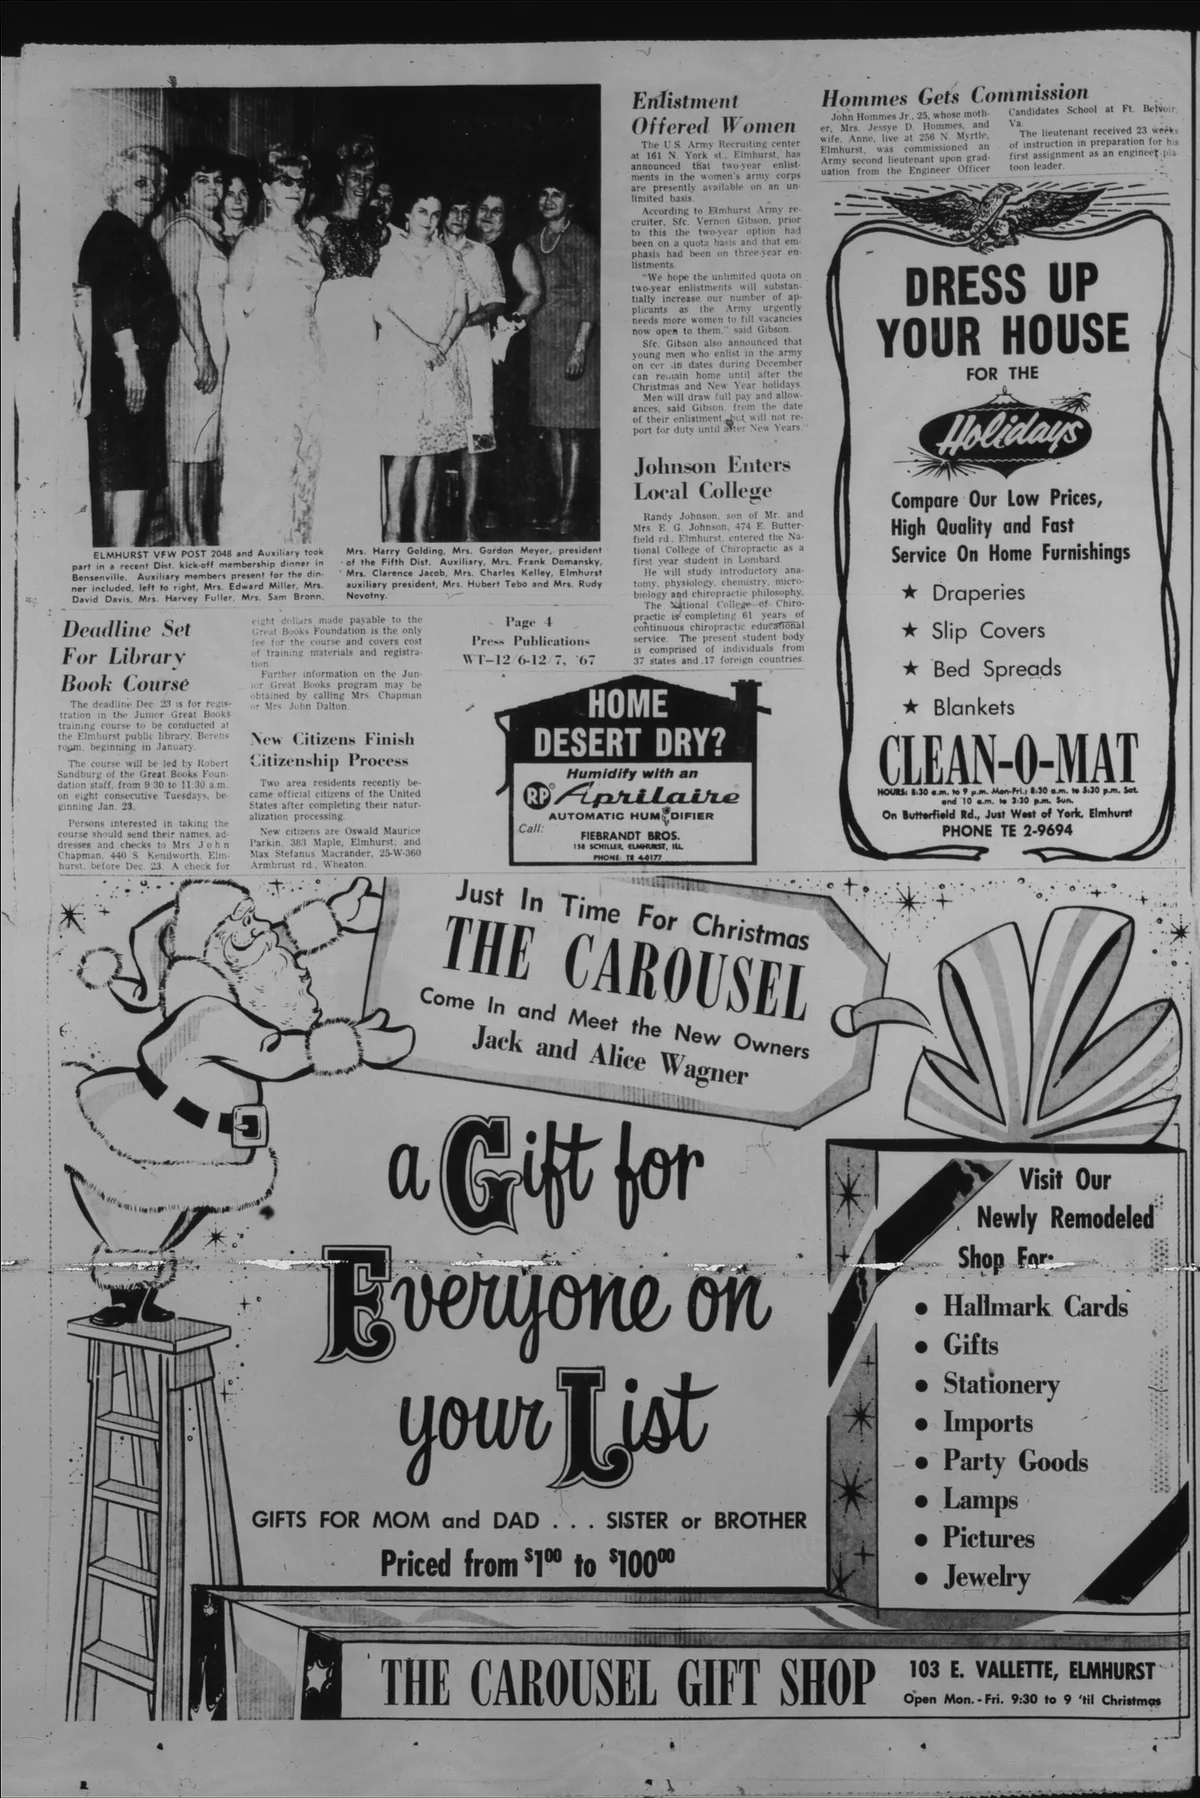 ELMHURST VFW POST 2048 and Auxiliary took
part in a recent Dist. kick-off membership dinner in
Bensenville. Auxiliary members present for the din-
ner included, left to right, Mrs. Edward Miller, Mrs.
David Davis, Mrs. Harvey Fuller, Mrs. Sam Bronn,
Mrs. Harry Golding, Mrs. Gordon Meyer, president
of the Fifth Dist. Auxiliary, Mrs. Frank Domansky,
Mrs. Clarence Jacob, Mrs. Charles Kelley, Elmhurst
auxiliary president, Mrs. Hubert Tebo and Mrs. Rudy
Novotny.
Deadline Set
For Library
Book Course
The deadline Dec. 23 is for regis-
tration in the Junior Great Books
training course to be conducted at
the Elmhurst public library, Berens
room, beginning in January.
The course will be led by Robert
Sandburg of the Great Books Foun-
dation staff, from 9:30 to 11:30 a.m.
on eight consecutive Tuesdays, be-
ginning Jan. 23.
Persons interested in taking the
course should send their names, ad-
dresses and checks to Mrs. John
Chapman, 440 S. Kenilworth, Elm-
hurst, before Dec. 23. A check for
eight dollars made payable to the
Great Books Foundation is the only
fee for the course and covers cost
of training materials and registra-
tion.
Further information on the Jun-
ior Great Books program may be
obtained by calling Mrs. Chapman
or Mrs. John Dalton.
New Citizens Finish
Citizenship Process
Two area residents recently be-
came official citizens of the United
States after completing their natur-
alization processing.
New citizens are Oswald Maurice
Parkin, 383 Maple, Elmhurst; and
Max Stefanus Macrander, 25-W-360
Armbrust rd., Wheaton.
Page 4
Press Publications
WT-12/6-12/7, '67
Enlistment
Offered Women
The U.S. Army Recruiting center
at 161 N. York st., Elmhurst, has
announced that two-year enlist-
ments in the women's army corps
are presently available on an un-
limited basis.
According to Elmhurst Army re-
cruiter, Sfc. Vernon Gibson, prior
to this the two-year option had
been on a quota basis and that em-
phasis had been on three-year en-
listments.
"We hope the unlimited quota on
two-year enlistments will substan-
tially increase our number of ap-
plicants as the Army urgently
needs more women to fill vacancies
now open to them," said Gibson.
Sfc. Gibson also announced that
young men who enlist in the army
on cer in dates during December
can remain home until after the
Christmas and New Year holidays.
Men will draw full pay and allow-
ances, said Gibson, from the date
of their enlistment but will not re-
port for duty until after New Years."
Johnson Enters
Local College
Randy Johnson, son of Mr. and
Mrs. E. G. Johnson, 474 E. Butter-
field rd., Elmhurst, entered the Na-
tional College of Chiropractic as a
first year student in Lombard.
He will study introductory ana-
tomy, physiology, chemistry, micro-
biology and chiropractic philosophy.
The National College of Chiro-
practic is completing 61 years of
continuous chiropractic educational
service. The present student body
is comprised of individuals from
37 states and 17 foreign countries.
Hommes Gets Commission
John Hommes Jr., 25, whose moth-
er, Mrs. Jessye D. Hommes, and
wife, Anne, live at 256 N. Myrtle,
Elmhurst, was commissioned an
Army second lieutenant upon grad-
uation from the Engineer Officer
Candidates School at Ft. Belvoir,
Va.
The lieutenant received 23 weeks
of instruction in preparation for his
first assignment as an engineer pla-
toon leader.
HOME
DESERT DRY?
Humidify with an
RP Aprilaire
AUTOMATIC HUMIDIFIER
Call:
FIEBRANDT BROS.
158 SCHILLER, ELMHURST, ILL.
PHONE: TE 4-0177
DRESS UP
YOUR HOUSE
FOR THE
Holidays
Compare Our Low Prices,
High Quality and Fast
Service On Home Furnishings
★ Draperies
★ Slip Covers
★ Bed Spreads
★ Blankets
CLEAN-O-MAT
HOURS: 8:30 a.m. to 9 p.m. Mon-Fri.; 8:30 a.m. to 5:30 p.m. Sat.
and 10 a.m. to 3:30 p.m. Sun.
On Butterfield Rd., Just West of York, Elmhurst
PHONE TE 2-9694
Just In Time For Christmas
THE CAROUSEL
Come In and Meet the New Owners
Jack and Alice Wagner
a Gift for
Everyone on
your List
GIFTS FOR MOM and DAD . . . SISTER or BROTHER
Priced from $1.00 to $100.00
Visit Our
Newly Remodeled
Shop For:
• Hallmark Cards
• Gifts
• Stationery
• Imports
• Party Goods
• Lamps
• Pictures
• Jewelry
THE CAROUSEL GIFT SHOP
103 E. VALLETTE, ELMHURST
Open Mon.-Fri. 9:30 to 9 'til Christmas